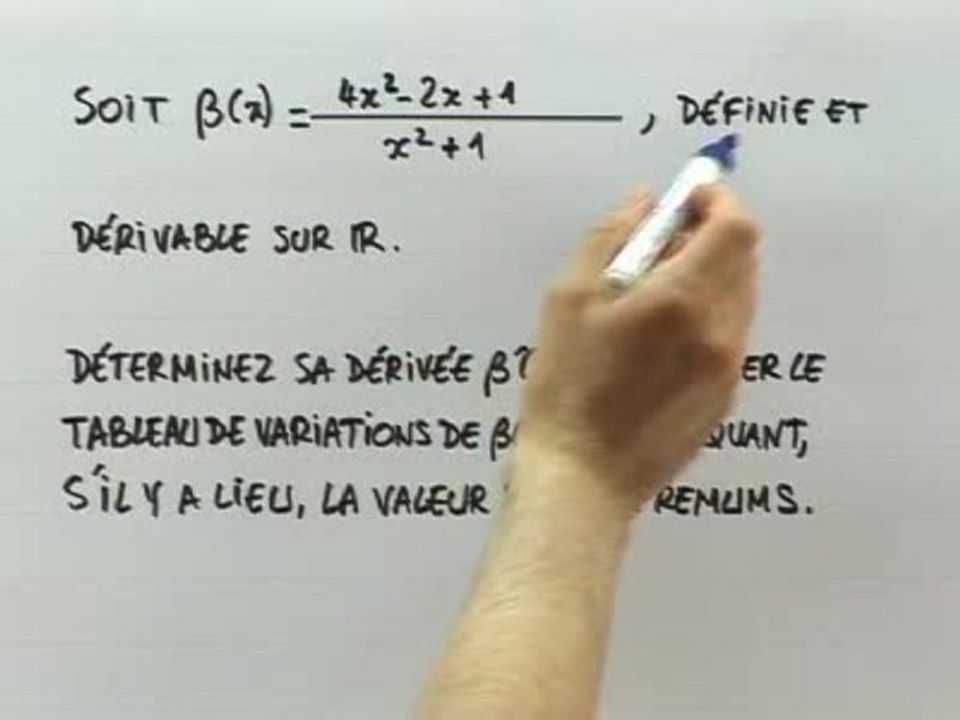 SOIT β(x) = 4x²-2x+1 / x²+1 , DÉFINIE ET
DÉRIVABLE SUR IR.
DÉTERMINEZ SA DÉRIVÉE β' LE
TABLEAU DE VARIATIONS DE β
S'IL Y A LIEU, LA VALEUR